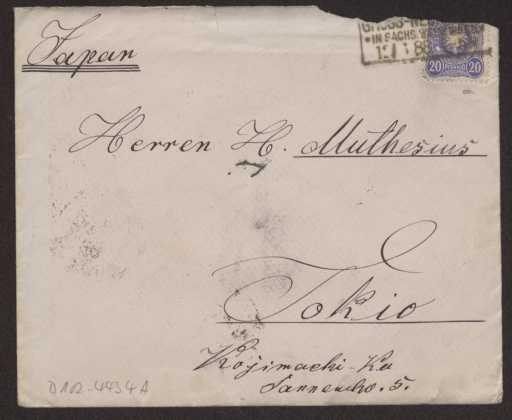 Japan
GROSS-NE
* IN SACHS.
12 88
20 PFENNIG 20
Herren H. Muthesius
Tokio
Kojimachi-Ku
Sannencho. 5.
D102-4434A